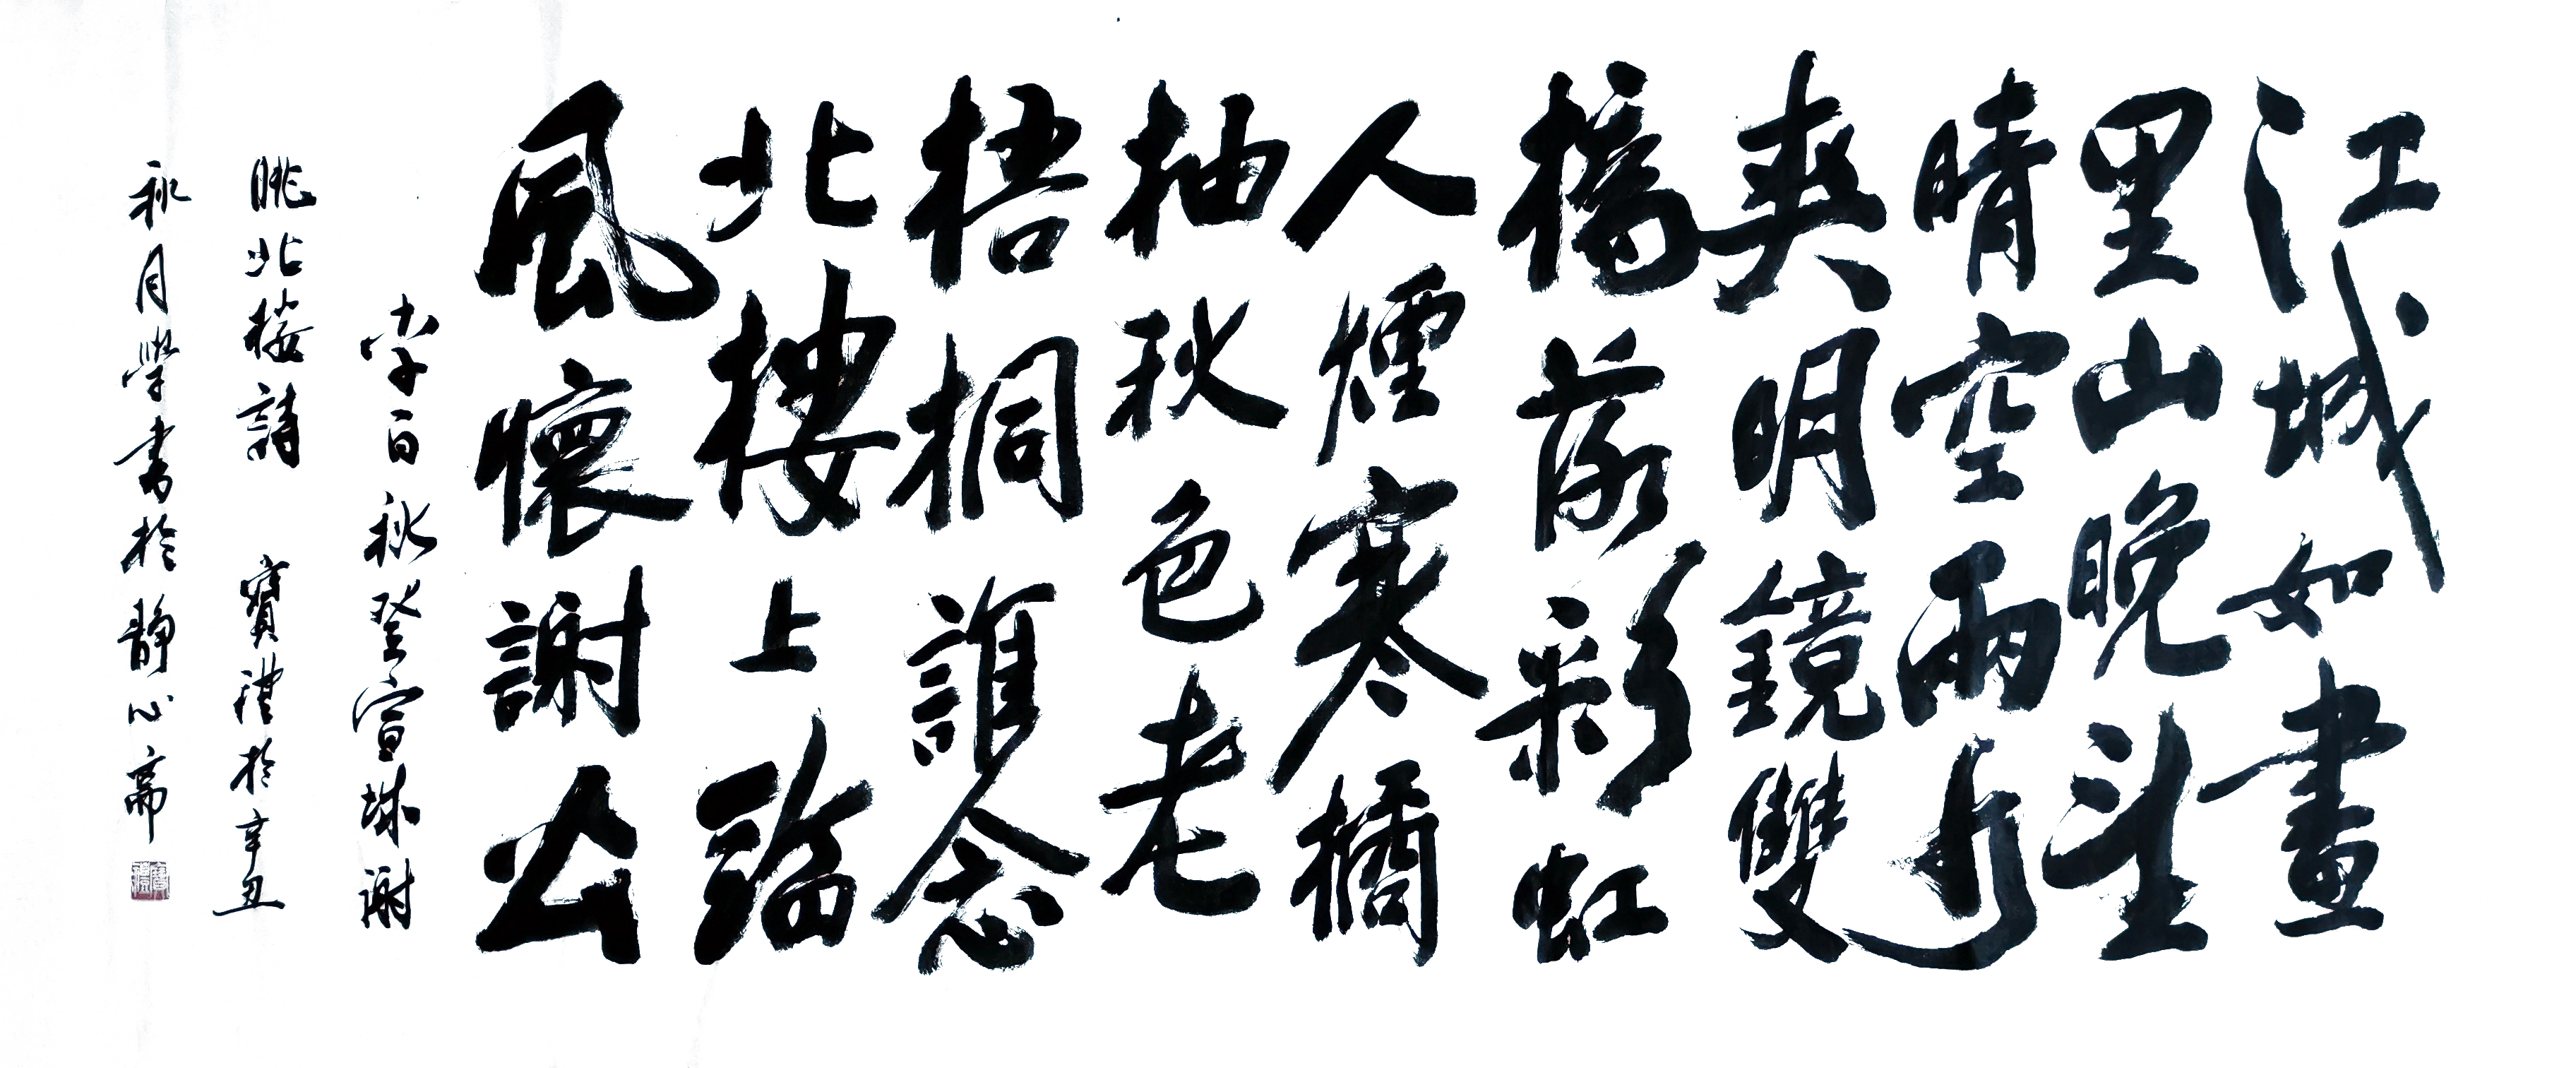 江城如畫
里山晚望
晴空兩水
夾明鏡雙
橋落彩虹
人煙寒橘
柚秋色老
梧桐誰念
北樓上臨
風懷謝公
李白秋登宣城謝
眺北樓詩 寶禮於辛丑
秋月學書於靜心齋